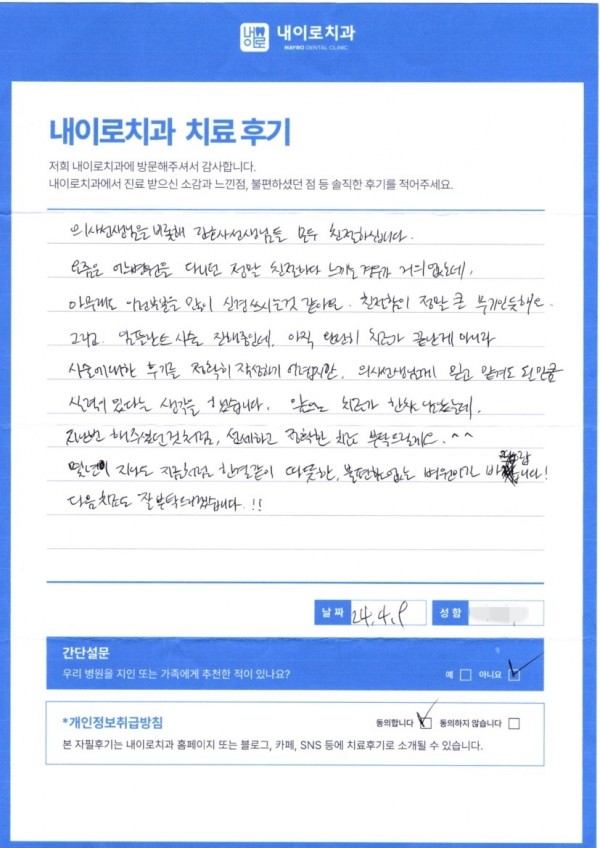 내이로
내이로치과
NAYRO DENTAL CLINIC
내이로치과 치료 후기
저희 내이로치과에 방문해주셔서 감사합니다.
내이로치과에서 진료 받으신 소감과 느낀점, 불편하셨던 점 등 솔직한 후기를 적어주세요.
의사선생님을 비롯해 간호사선생님들 모두 친절하십니다.
요즘은 어느병원을 다니던 정말 친절하다 느끼는 경우가 거의 없는데,
아무래도 이런부분을 많이 신경쓰시는것 같아요. 친절함이 정말 큰 무기인듯해요.
그리고, 임플란트 시술 진행중인데, 아직 완전히 치료가 끝난게 아니라
시술에대한 후기를 정확히 작성하기 어렵지만, 의사선생님께 믿고 맡겨도 될만큼
실력이 있다는 생각을 했습니다. 앞으로 치료가 한참 남았는데,
지난번 해주셨던것처럼, 섬세하고 정확한 치료 부탁드릴게요. ^^
몇년이 지나도 지금처럼 한결같이 따뜻한, 불편함없는 병원이기 바랍니다!
다음치료도 잘 부탁드리겠습니다.!!
날 짜 24. 4. 9 성 함
간단설문
우리 병원을 지인 또는 가족에게 추천한 적이 있나요? 예 아니요
*개인정보취급방침 동의합니다 동의하지 않습니다
본 자필후기는 내이로치과 홈페이지 또는 블로그, 카페, SNS 등에 치료후기로 소개될 수 있습니다.